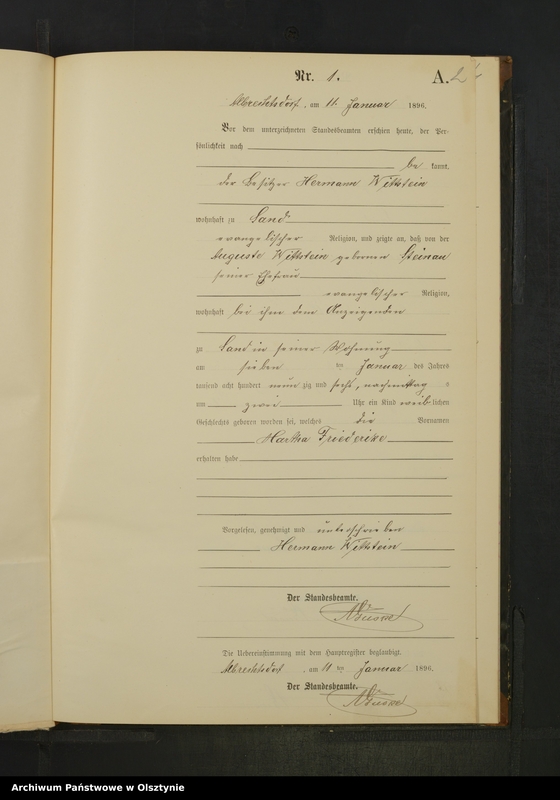 Nr. 1.
A.
Albrechtsdorf, am 11. Januar 1896.
Vor dem unterzeichneten Standesbeamten erschien heute, der Per-
sönlichkeit nach
be kannt,
der Besitzer Hermann Wittstein
wohnhaft zu Sand
evangelischer Religion, und zeigte an, daß von der
Auguste Wittstein geborenen Steinau
seiner Ehefrau
evangelischer Religion,
wohnhaft bei ihm dem Anzeigenden
zu Sand in seiner Wohnung
am sieben ten Januar des Jahres
tausend acht hundert neun zig und sechs, nachmittag s
um zwei Uhr ein Kind weib lichen
Geschlechts geboren worden sei, welches die Vornamen
Martha Friederike
erhalten habe
Vorgelesen, genehmigt und unterschrieben
Hermann Wittstein
Der Standesbeamte.
Die Uebereinstimmung mit dem Hauptregister beglaubigt.
Albrechtsdorf, am 11 ten Januar 1896.
Der Standesbeamte.
Archiwum Państwowe w Olsztynie